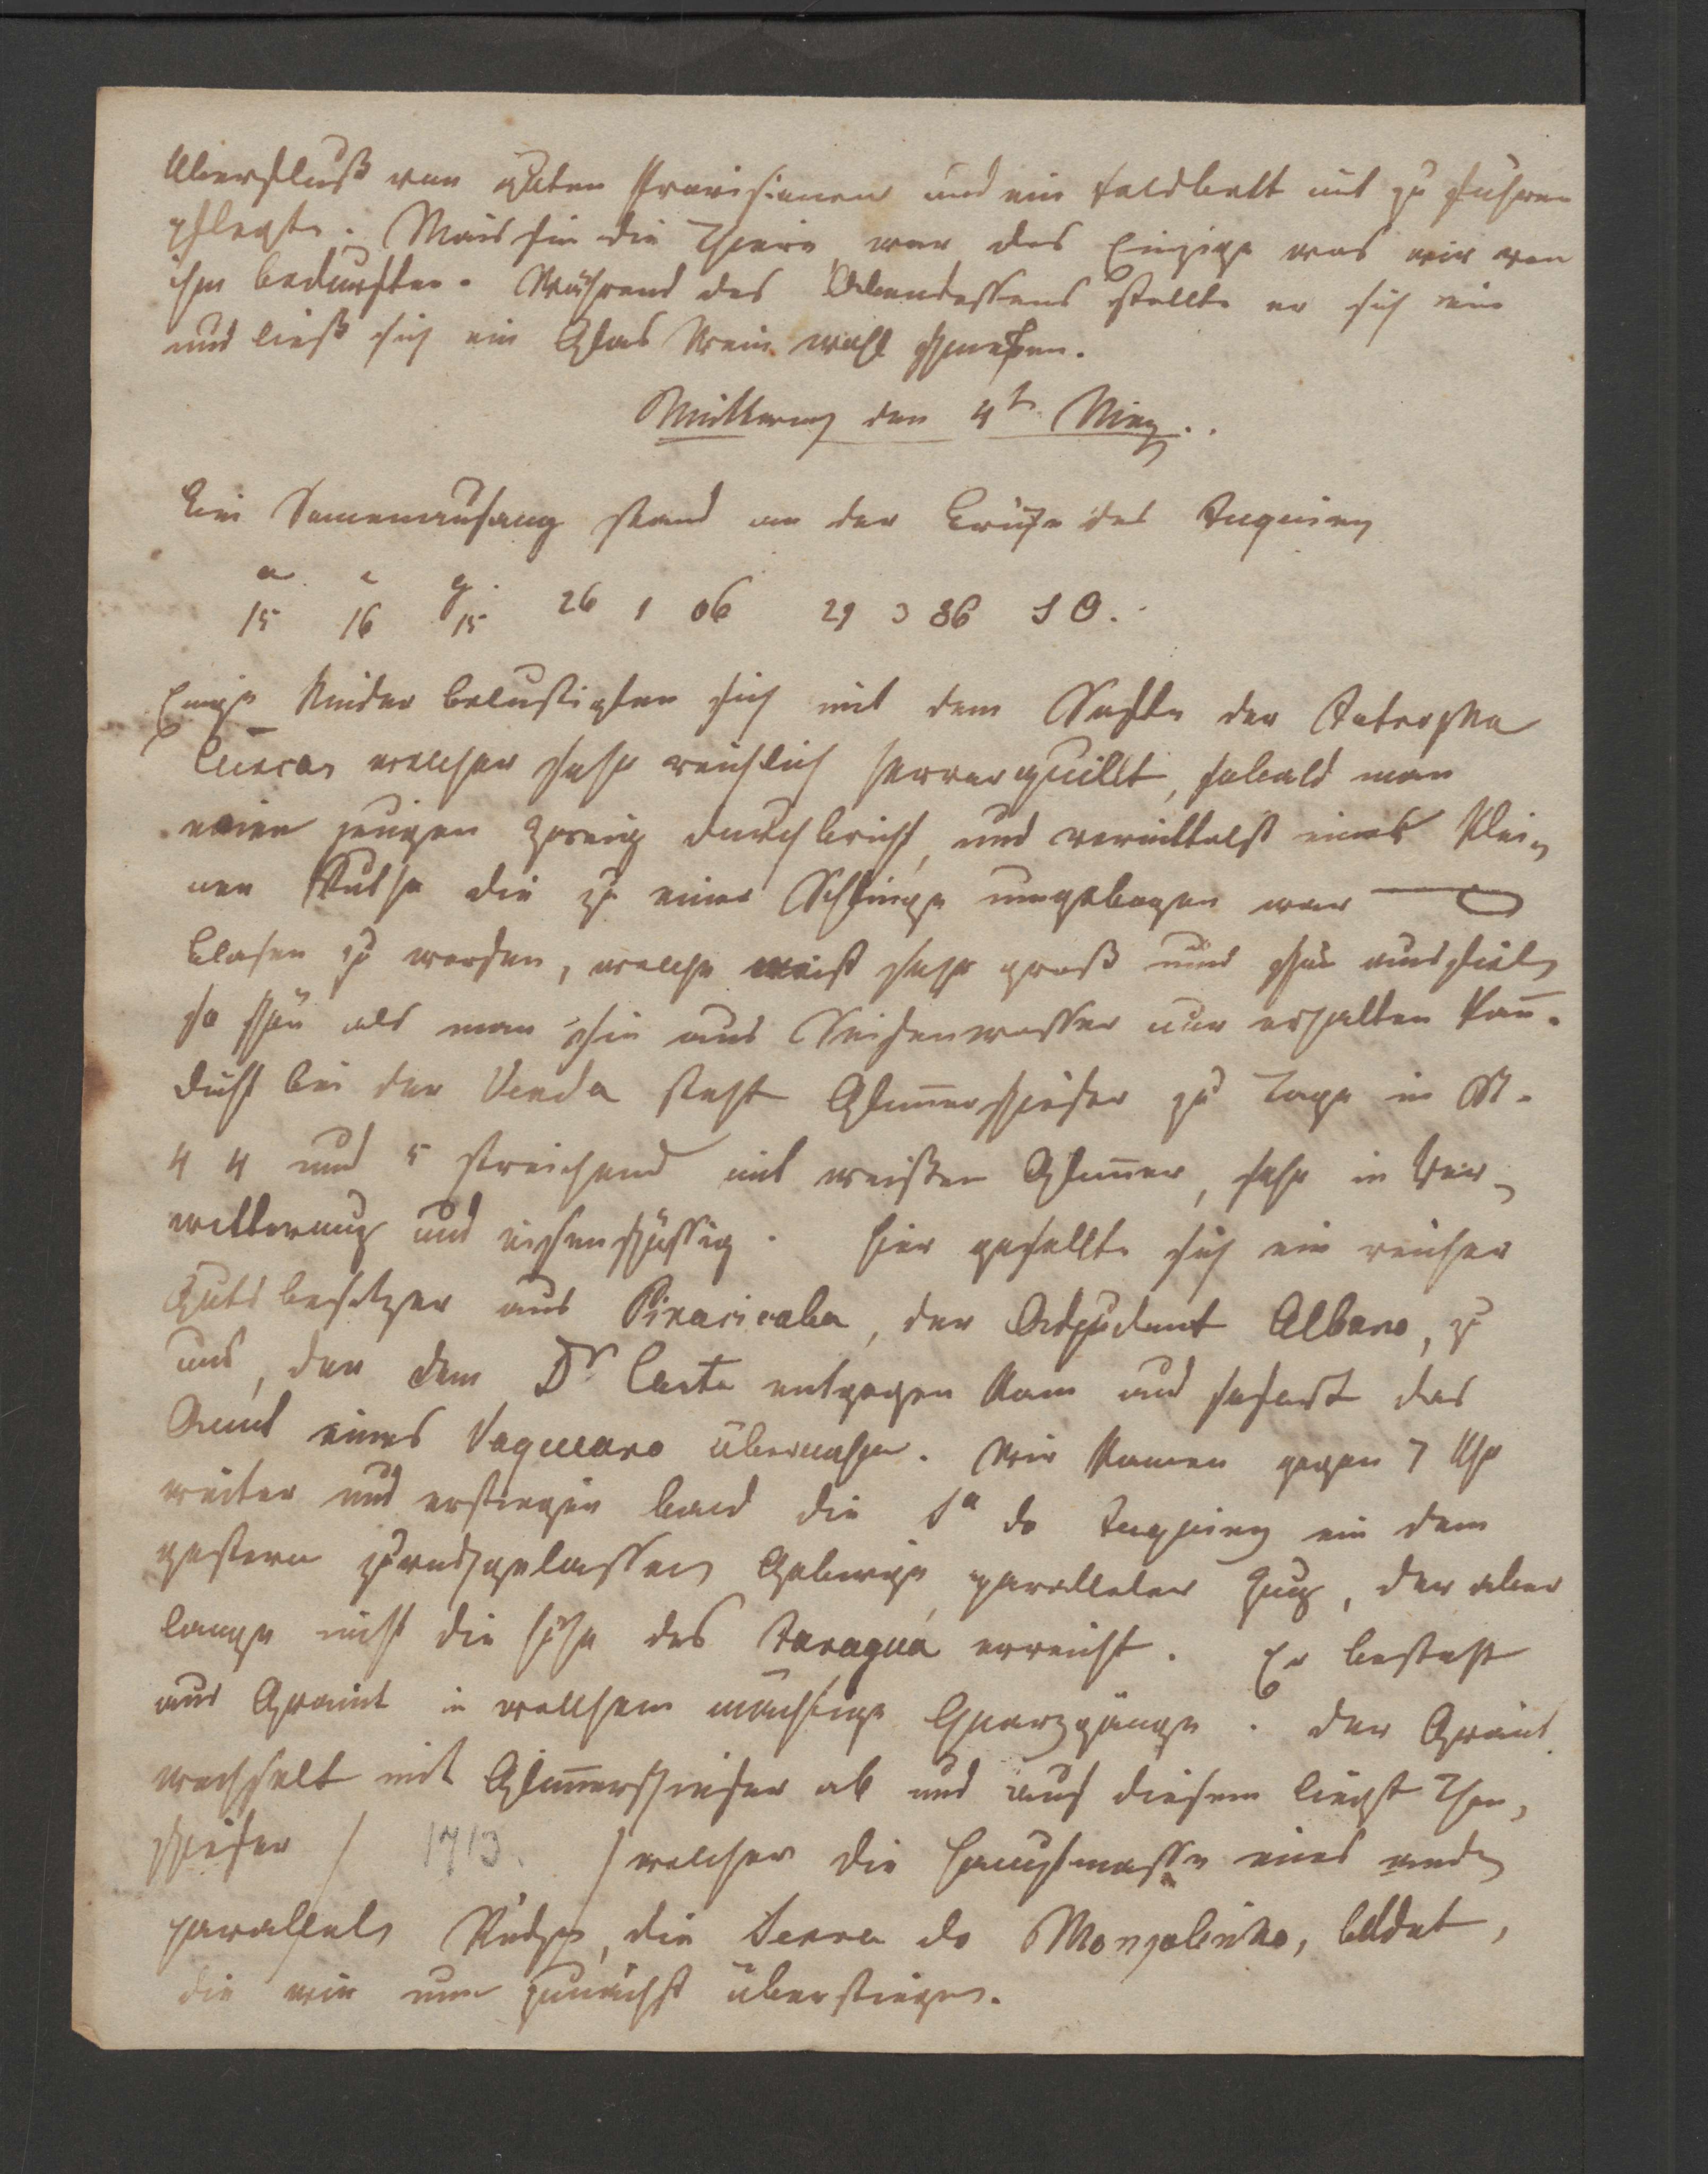 Überfluß von guten Provisionen und ein Feldbett mit zu führen
pflegte. Mais für die Thiere war das Einzige was wir von
ihm bedurften. Während des Abendessens stellte er sich ein
und ließ sich ein Glas Wein wohl schmecken.
Mittwoch den 4t März.
Bei Sonnenaufang stand an der Brücke des Juquiry
a c g.
15 16 15 26 1 06 29 3 86 SO.
Einige Kinder belustigten sich mit dem Safte der Jatropha
Curcas welcher sehr reichlich hervorquillt, sobald man
einen jungen Zweig durchbricht, und vermittelst einer klei-
nen Ruthe die zu einer Schlinge umgebogen war
Blasen zu werfen, welche meist sehr groß und schön ausfielen
so schön als man sie aus Seifenwasser nur erhalten kañ.
Dicht bei der Venda steht Glim̄erschiefer zu Tage in St.
4 4 und 5 streichend mit weißem Glim̄er, sehr in Ver-
witterung und eisenschüssig. Hier gesellte sich ein reicher
Gutsbesitzer aus Piracicaba, der Adjudant Albano, zu
uns, der dem Dr Costa entgegen kam und sofort das
Amt eines Vaqueano übernahm. Wir kamen gegen 7 Uhr
weiter und erstiegen bald die Sa do Juquiry ein dem
gestern zurückgelassen Gebirge paralleler Zug, der aber
lange nicht die Höhe des Jaraguá erreicht. Er besteht
aus Granit in welchem mächtige Quarzgänge. Der Granit
wechselt mit Glim̄erschiefer ab und auf diesem liegt Thon-
schiefer / 1713. / welcher die Hauptmasse eines andern
parallelen Rückens, die Serra do Monjolinho, bildet,
die wir nun zunächst überstiegen.